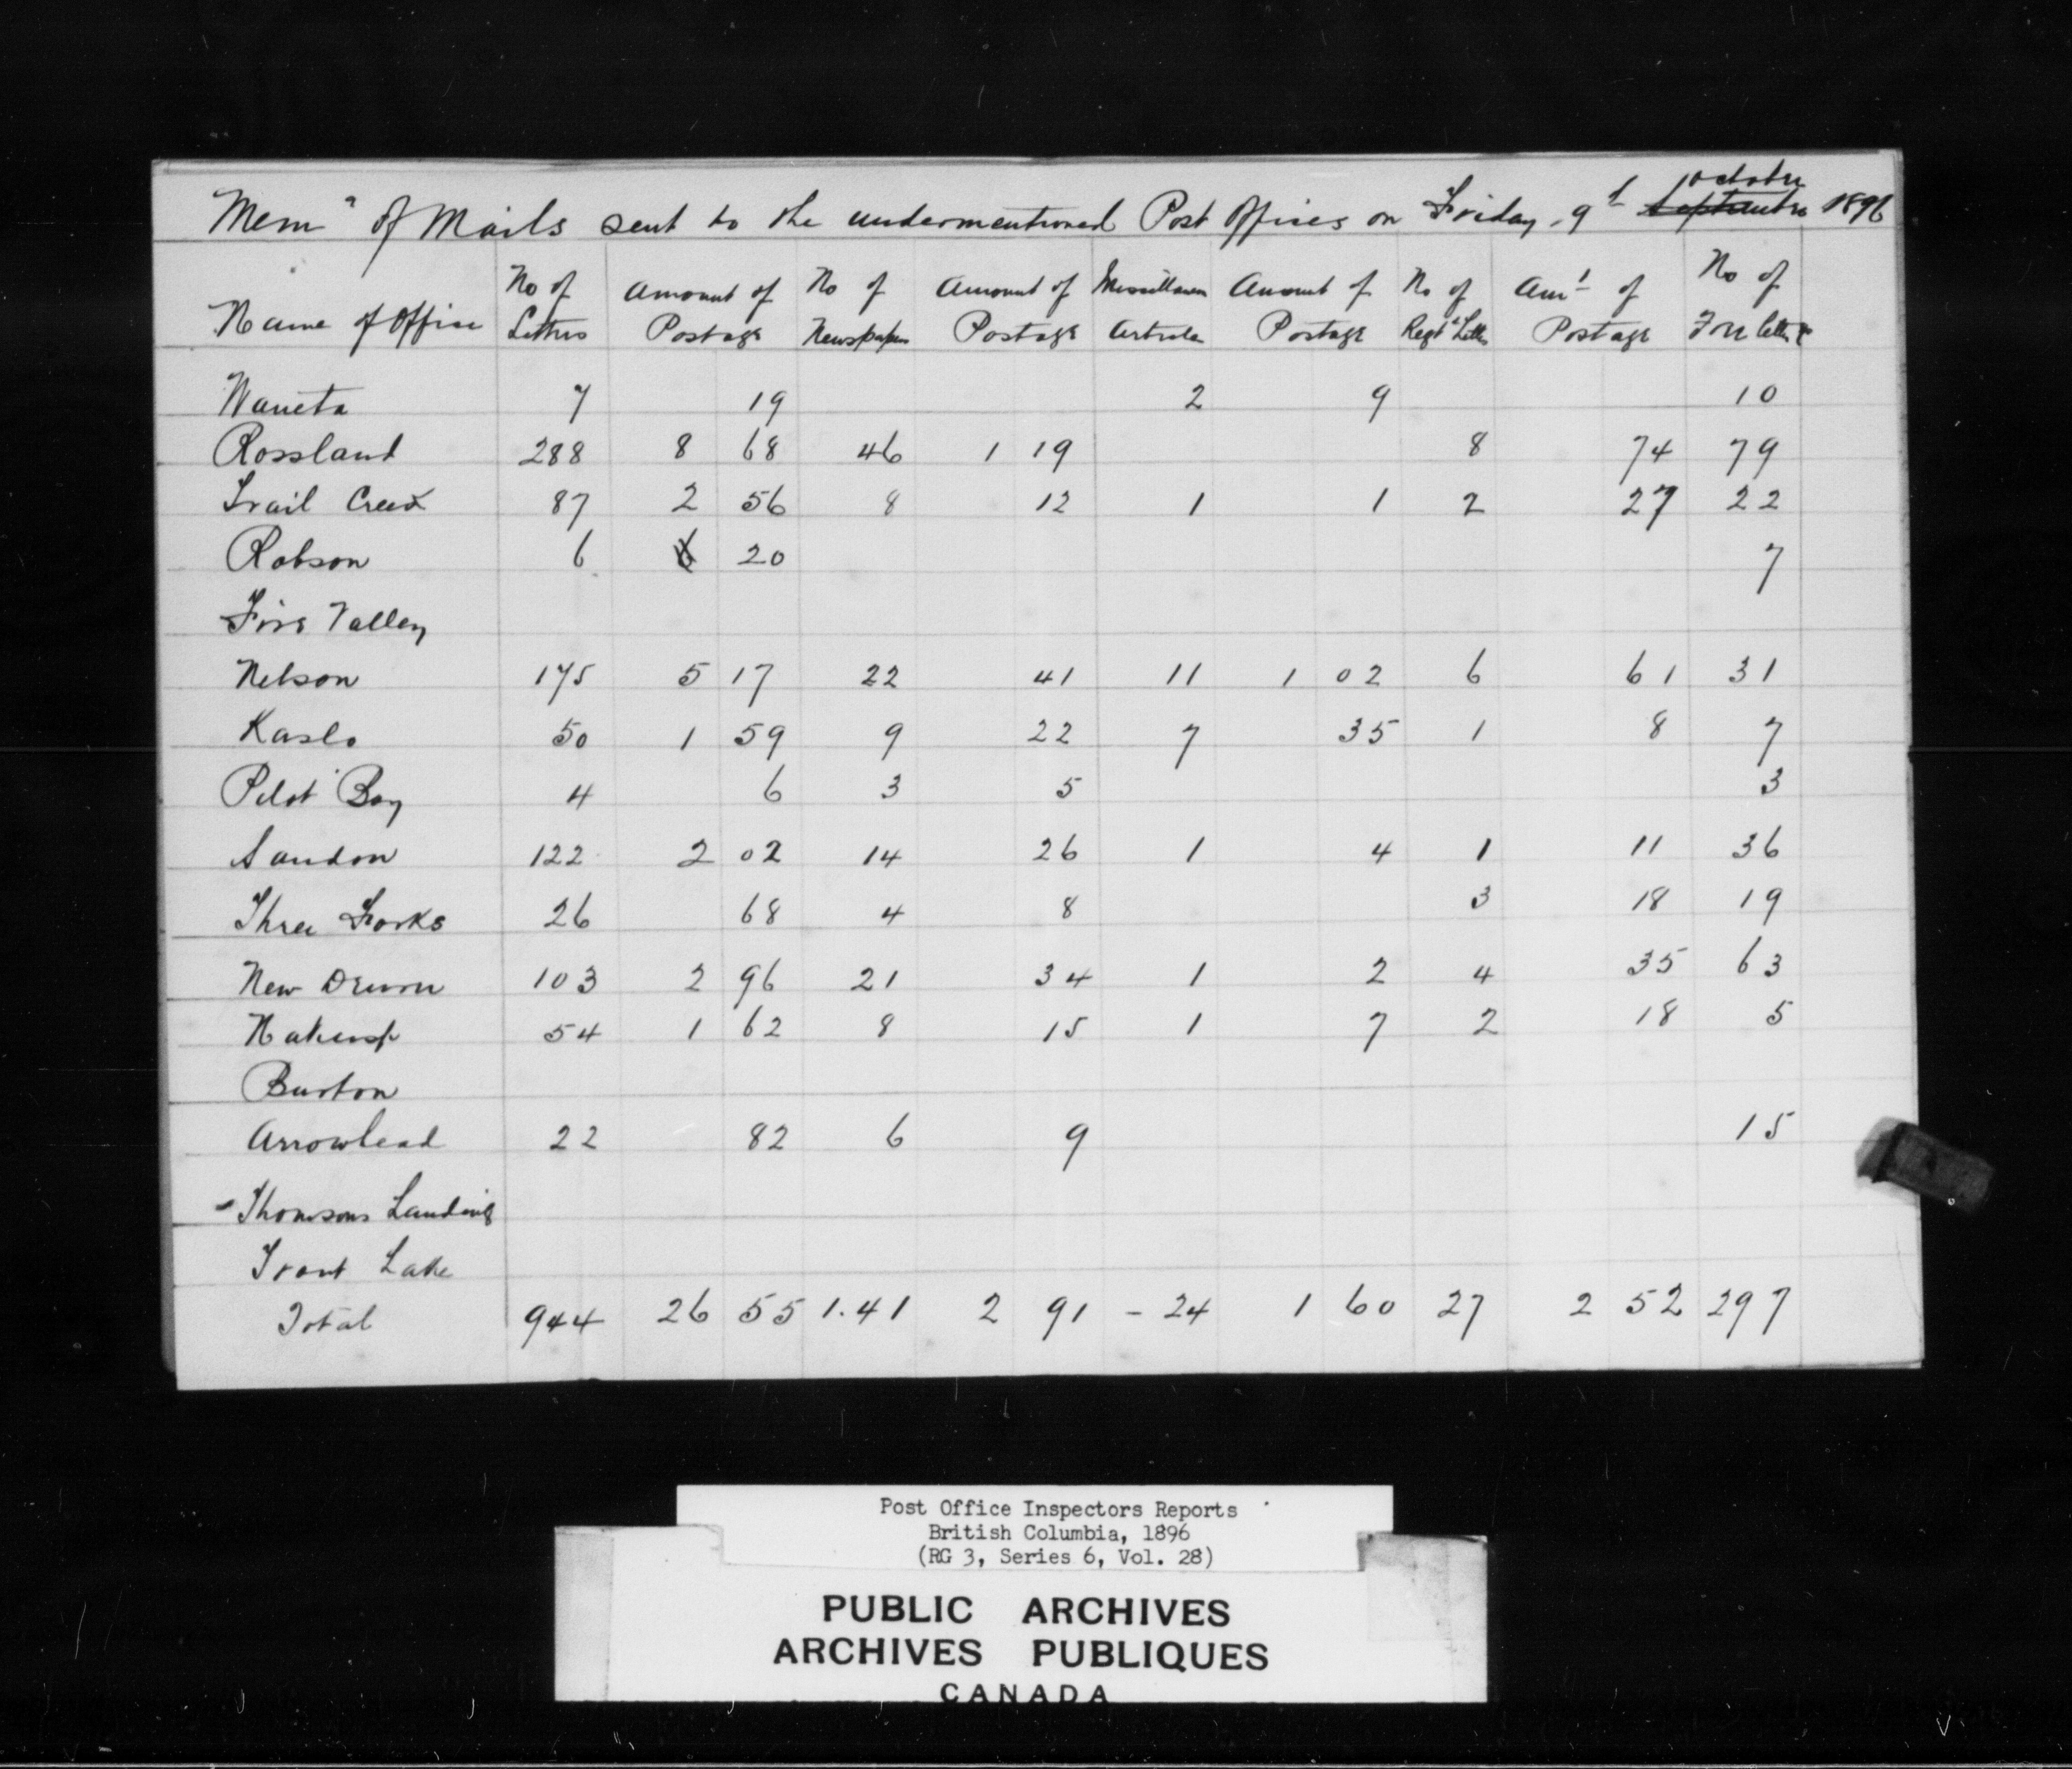 Memo of Mails sent to the undermentioned Post Offices on Friday 9th ~~September~~ October 1896
Name of Office No of Letters Amount of Postage No of Newspapers Amount of Postage Miscellaneous Articles Amount of Postage No of Regd Letters Amt of Postage No of Free letters
Waneta 7 19 2 9 10
Rossland 288 8 68 46 1 19 8 74 79
Trail Creek 87 2 56 8 12 1 1 2 27 22
Robson 6 20 7
Fire Valley
Nelson 175 5 17 22 41 11 1 02 6 61 31
Kaslo 50 1 59 9 22 7 35 1 8 7
Pilot Bay 4 6 3 5 3
Sandon 122 2 02 14 26 1 4 1 11 36
Three Forks 26 68 4 8 3 18 19
New Denver 103 2 96 21 34 1 2 4 35 63
Nakusp 54 1 62 8 15 1 7 2 18 5
Burton
Arrowhead 22 82 6 9 15
Thomsons Landing
Trout Lake
Total 944 26 55 1.41 2 91 - 24 1 60 27 2 52 297
Post Office Inspectors Reports
British Columbia, 1896
(RG 3, Series 6, Vol. 28)
PUBLIC ARCHIVES
ARCHIVES PUBLIQUES
CANADA